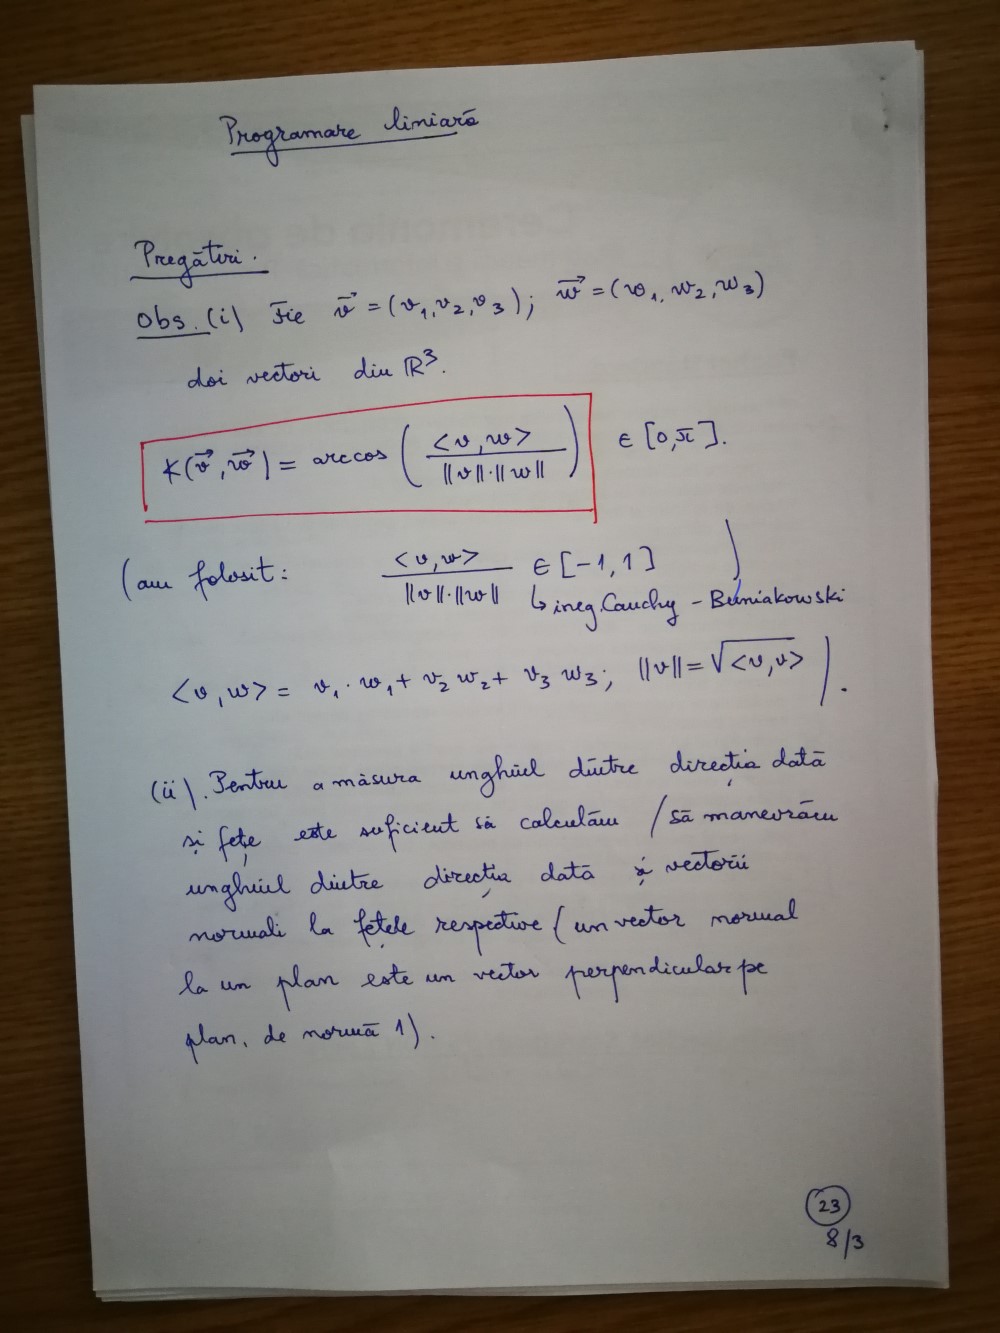 Programare liniară
Pregătiri.
Obs. (i) Fie v⃗ = (v₁, v₂, v₃); w⃗ = (w₁, w₂, w₃)
doi vectori din ℝ³.
∢(v⃗, w⃗) = arccos (<v, w> / ||v||·||w||) ∈ [0, π].
(am folosit: <v, w> / ||v||·||w|| ∈ [-1, 1] )
↳ ineg. Cauchy - Buniakowski
<v, w> = v₁·w₁ + v₂ w₂ + v₃ w₃; ||v|| = √<v, v> ).
(ii). Pentru a măsura unghiul dintre direcția dată
și fețe este suficient să calculăm / să manevrăm
unghiul dintre direcția dată și vectorii
normali la fețele respective (un vector normal
la un plan este un vector perpendicular pe
plan, de normă 1).
23
8/3